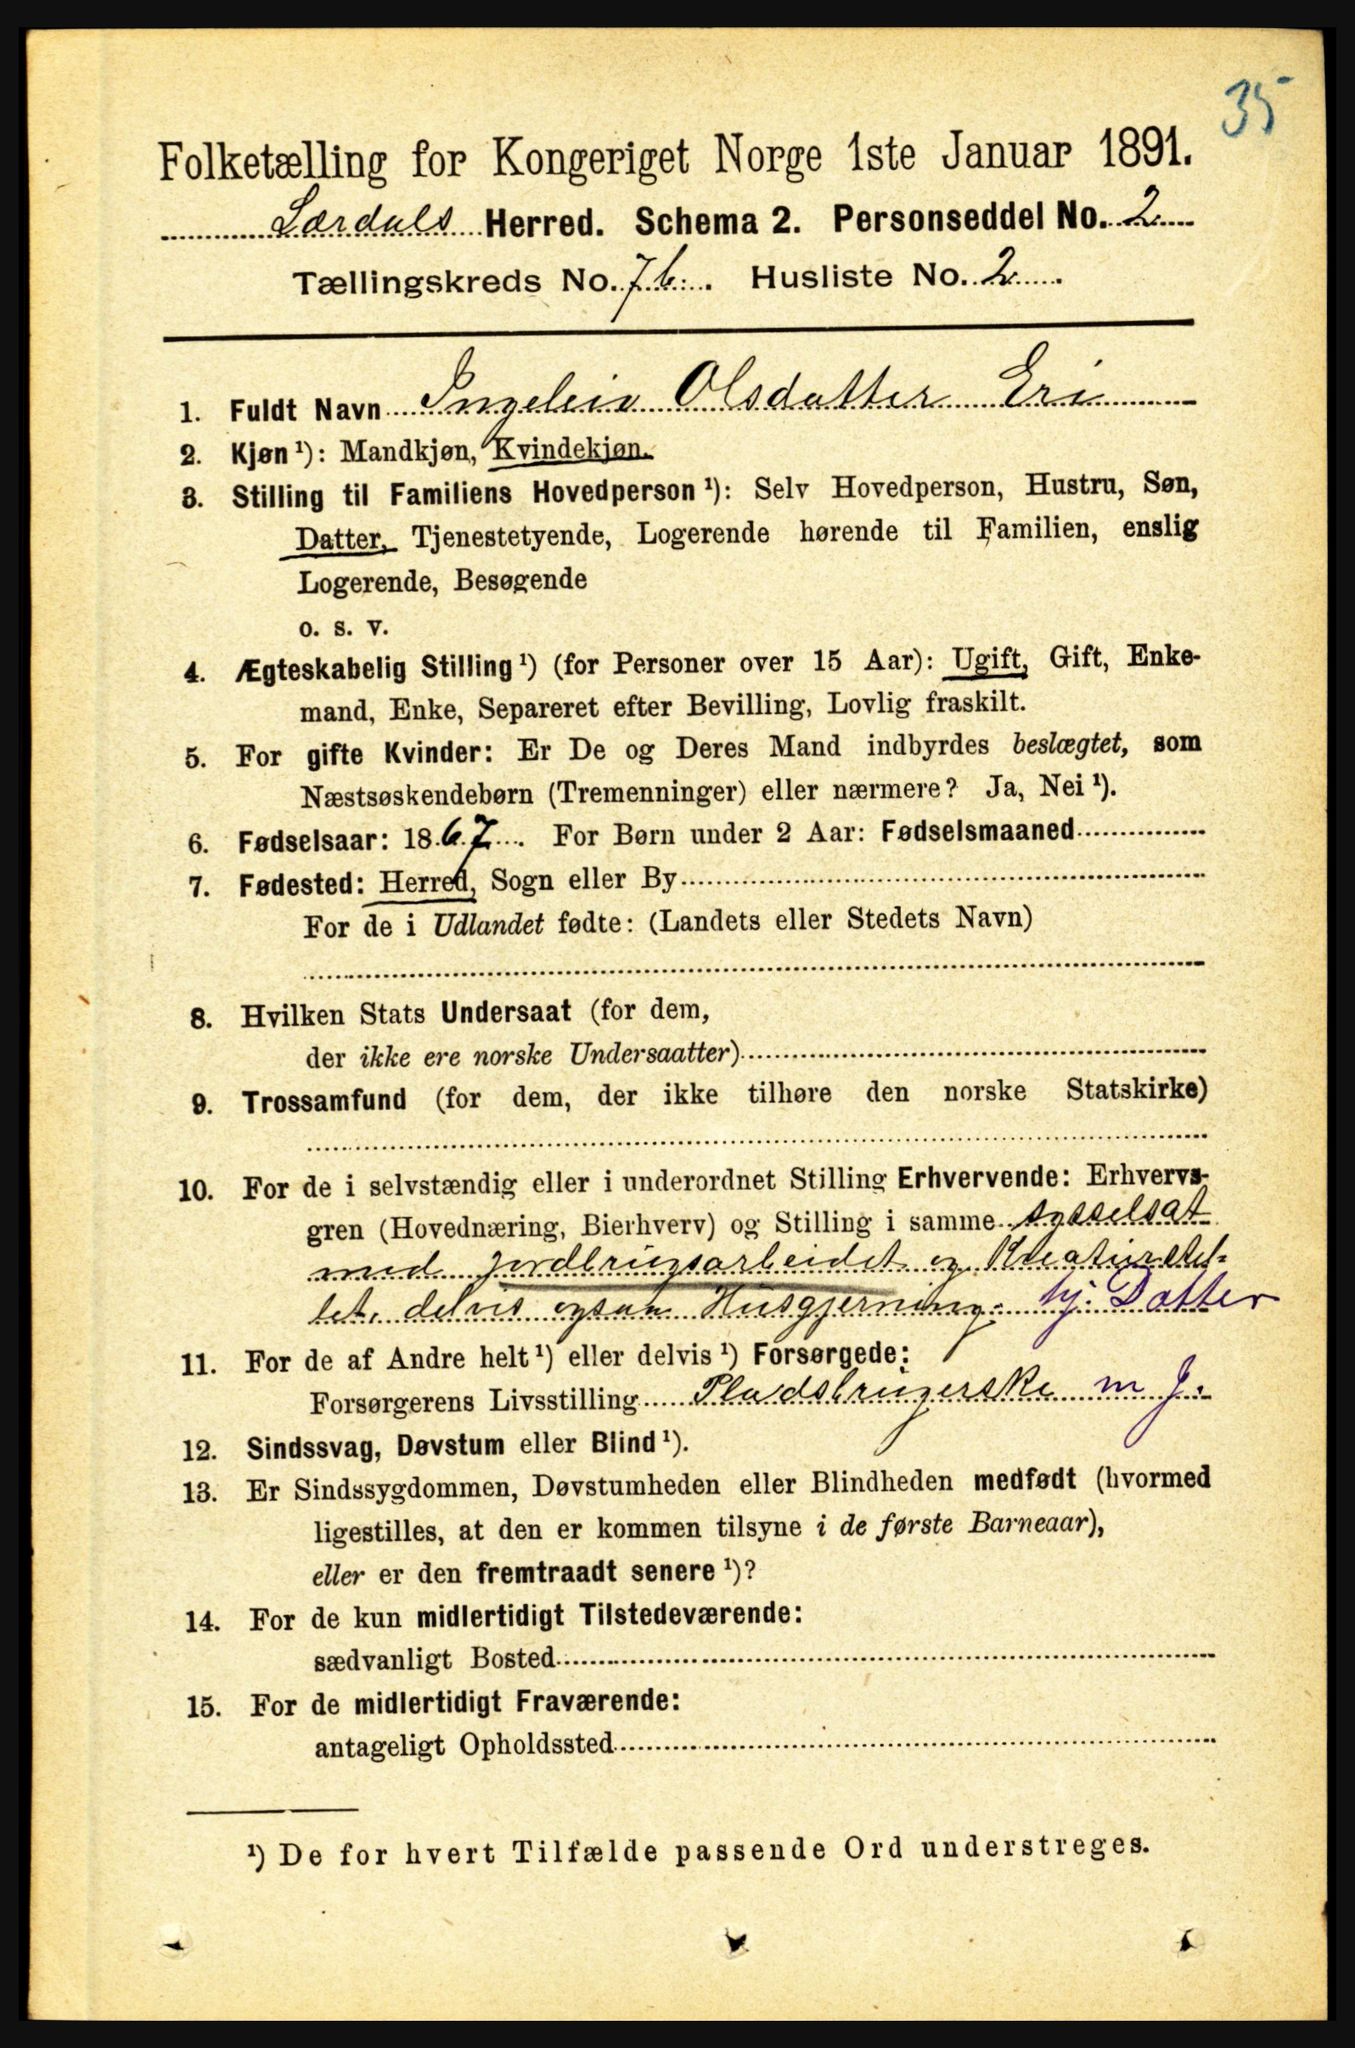 35
Folketælling for Kongeriget Norge 1ste Januar 1891.
Lærdals Herred. Schema 2. Personseddel No. 2
Tællingskreds No. 7b. Husliste No. 2.
1. Fuldt Navn Ingeleiv Olsdatter Eri
2. Kjøn ¹): Mandkjøn, Kvindekjøn.
3. Stilling til Familiens Hovedperson ¹): Selv Hovedperson, Hustru, Søn,
Datter, Tjenestetyende, Logerende hørende til Familien, enslig
Logerende, Besøgende
o. s. v.
4. Ægteskabelig Stilling ¹) (for Personer over 15 Aar): Ugift, Gift, Enke-
mand, Enke, Separeret efter Bevilling, Lovlig fraskilt.
5. For gifte Kvinder: Er De og Deres Mand indbyrdes beslægtet, som
Næstsøskendebørn (Tremenninger) eller nærmere? Ja, Nei ¹).
6. Fødselsaar: 1867. For Børn under 2 Aar: Fødselsmaaned
7. Fødested: Herred, Sogn eller By
For de i Udlandet fødte: (Landets eller Stedets Navn)
8. Hvilken Stats Undersaat (for dem,
der ikke ere norske Undersaatter)
9. Trossamfund (for dem, der ikke tilhøre den norske Statskirke)
10. For de i selvstændig eller i underordnet Stilling Erhvervende: Erhvervs-
gren (Hovednæring, Bierhverv) og Stilling i samme sysselsat
med jordbrugsarbeidet og Kreaturstel-
let, delvis ogsaa Husgjerning. tj. Datter
11. For de af Andre helt ¹) eller delvis ¹) Forsørgede:
Forsørgerens Livsstilling Pladsbrugerske m J.
12. Sindssvag, Døvstum eller Blind ¹).
13. Er Sindssygdommen, Døvstumheden eller Blindheden medfødt (hvormed
ligestilles, at den er kommen tilsyne i de første Barneaar),
eller er den fremtraadt senere ¹)?
14. For de kun midlertidigt Tilstedeværende:
sædvanligt Bosted
15. For de midlertidigt Fraværende:
antageligt Opholdssted
¹) De for hvert Tilfælde passende Ord understreges.